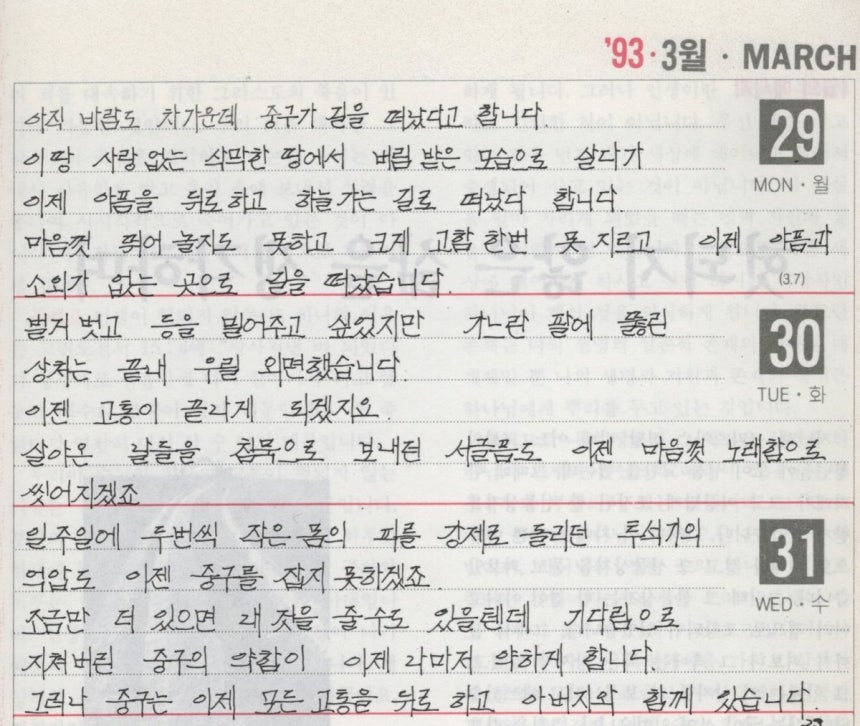 '93·3월·MARCH
아직 바람도 차가운데 중구가 길을 떠났다고 합니다
29
이땅 사랑 없는 삭막한 땅에서 버림 받은 모습으로 살다가
MON·월
이제 아픔을 뒤로하고 하늘가는 길로 떠났다 합니다
마음껏 뛰어 놀지도 못하고 크게 고함 한번 못 지르고 이제 아픔과
소외가 없는 곳으로 길을 떠났습니다.
(3.7)
벌거 벗고 등을 밀어주고 싶었지만 가느란 팔에 뚫린
30
상처는 끝내 우릴 외면했습니다
TUE·화
이젠 고통이 끝나게 되겠지요.
살아온 날들을 전북으로 보내던 서글픔도 이젠 마음껏 노래함으로
씻어지겠죠
일주일에 두번씩 작은 몸의 피를 강제로 돌리던 투석기의
31
억압도 이젠 중구를 잡지 못하겠죠
WED·수
조금만 더 있으면 내 것을 줄수도 있을텐데 기다림으로
지쳐버린 중구의 약함이 이제 나마저 약하게 합니다
그러나 중구는 이제 모든 고통을 뒤로 하고 아버지와 함께 있습니다.